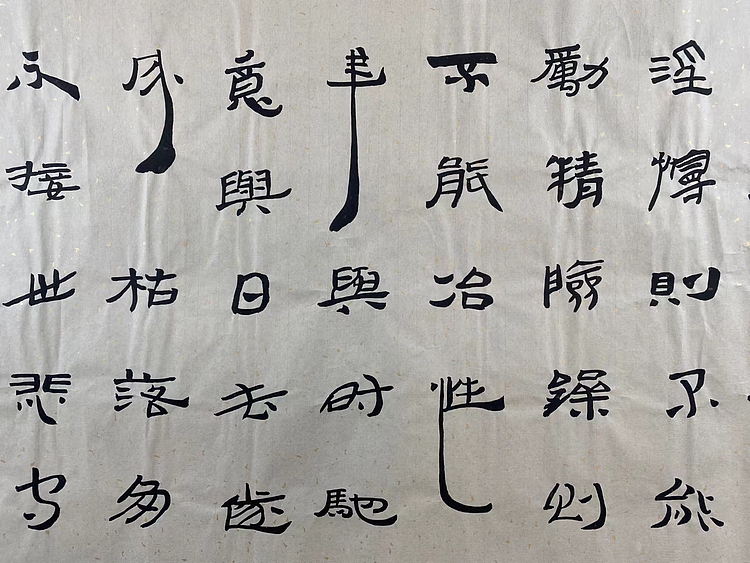 淫慢則不能
勵精險躁则
不能冶性
年與时馳
意與日去遂
成枯落多
不接世悲守